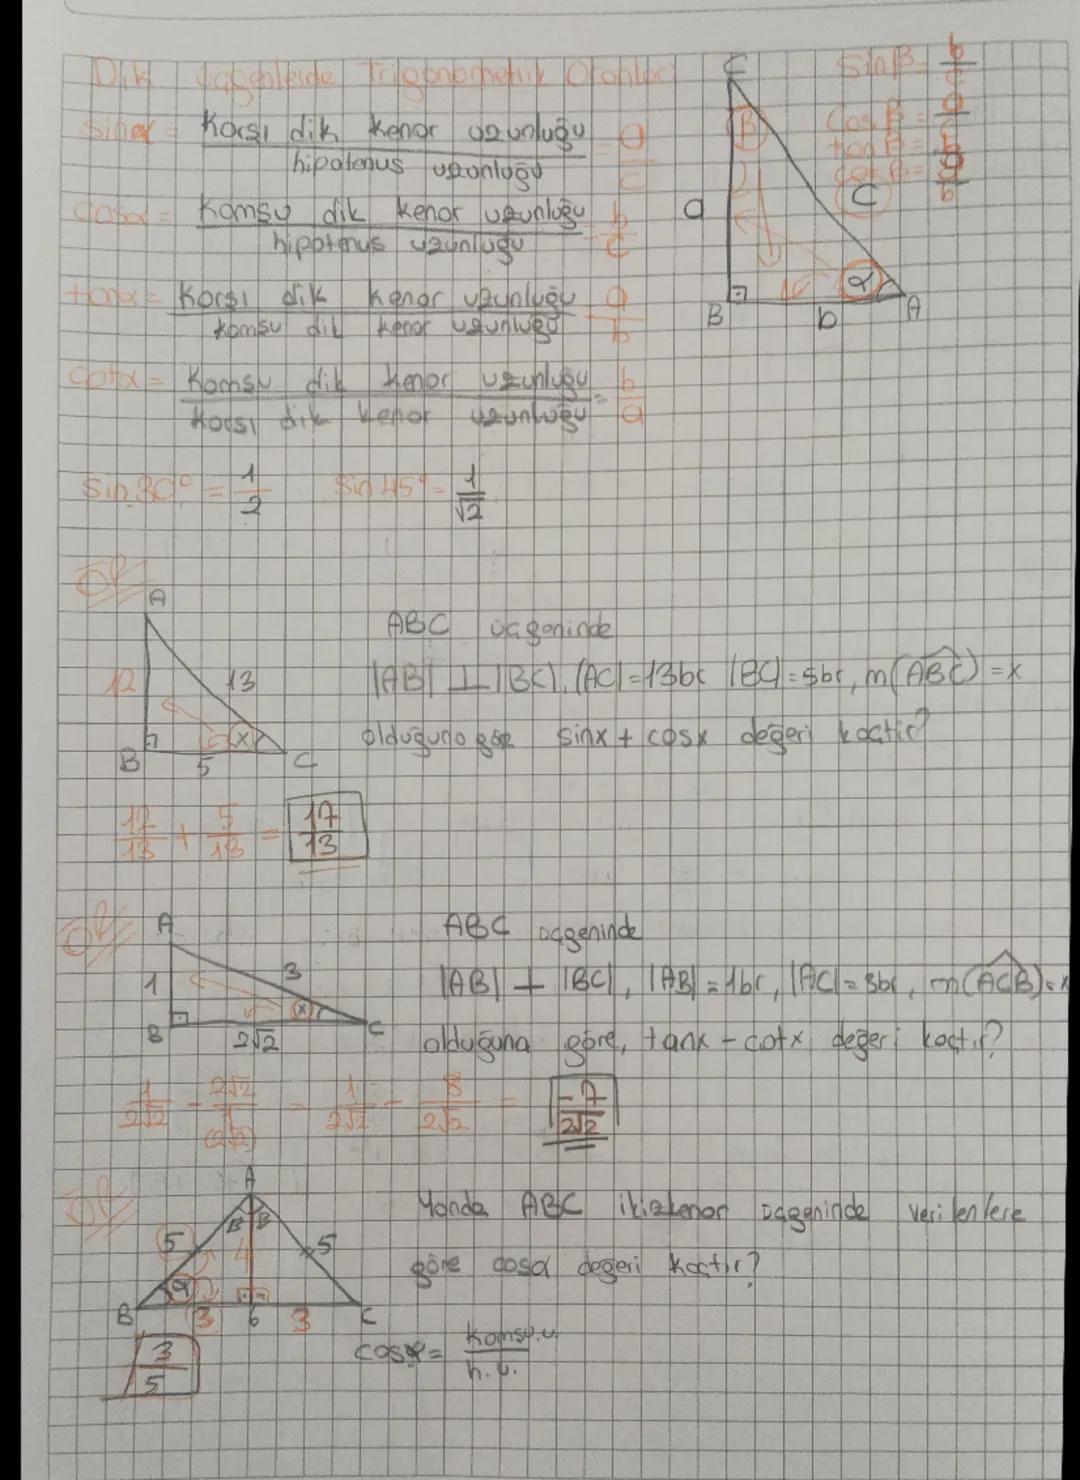 Dik Üçgenlerde Trigonometrik Oranlar
sinα = Karşı dik kenar uzunluğu / hipotenus uzunluğu = a/c
cosα = Komşu dik kenar uzunluğu / hipotenus uzunluğu = b/c
tanα = Karşı dik kenar uzunluğu / komşu dik kenar uzunluğu = a/b
cotα = Komşu dik kenar uzunluğu / Karşı dik kenar uzunluğu = b/a
C
B
a
C
α
B
b
A
sinβ = b/c
cosβ = a/c
tanβ = b/a
cotβ = a/b
sin30° = 1/2 sin45° = 1/√2
ÖR/
A
12 13
x
B 5 C
ABC üçgeninde
|AB| ⊥ |BC|, |AC| = 13br |BC| = 5br, m(ABC) = x
olduğuna göre sinx + cosx değeri kaçtır?
12/13 + 5/13 = 17/13
ÖR/
A
1 3
x
B 2√2 C
ABC üçgeninde
|AB| ⊥ |BC|, |AB| = 1br, |AC| = 3br, m(ACB) = x
olduğuna göre, tanx - cotx değeri kaçtır?
1/2√2 - 2√2/1 (2√2) = 1/2√2 - 8/2√2 = -7/2√2
ÖR/
A
β β
5 4 5
α
B 3 6 3 C
Yanda ABC ikizkenar üçgeninde verilenlere
göre cosα değeri kaçtır?
cosα = komşu.u. / h.u.
3/5